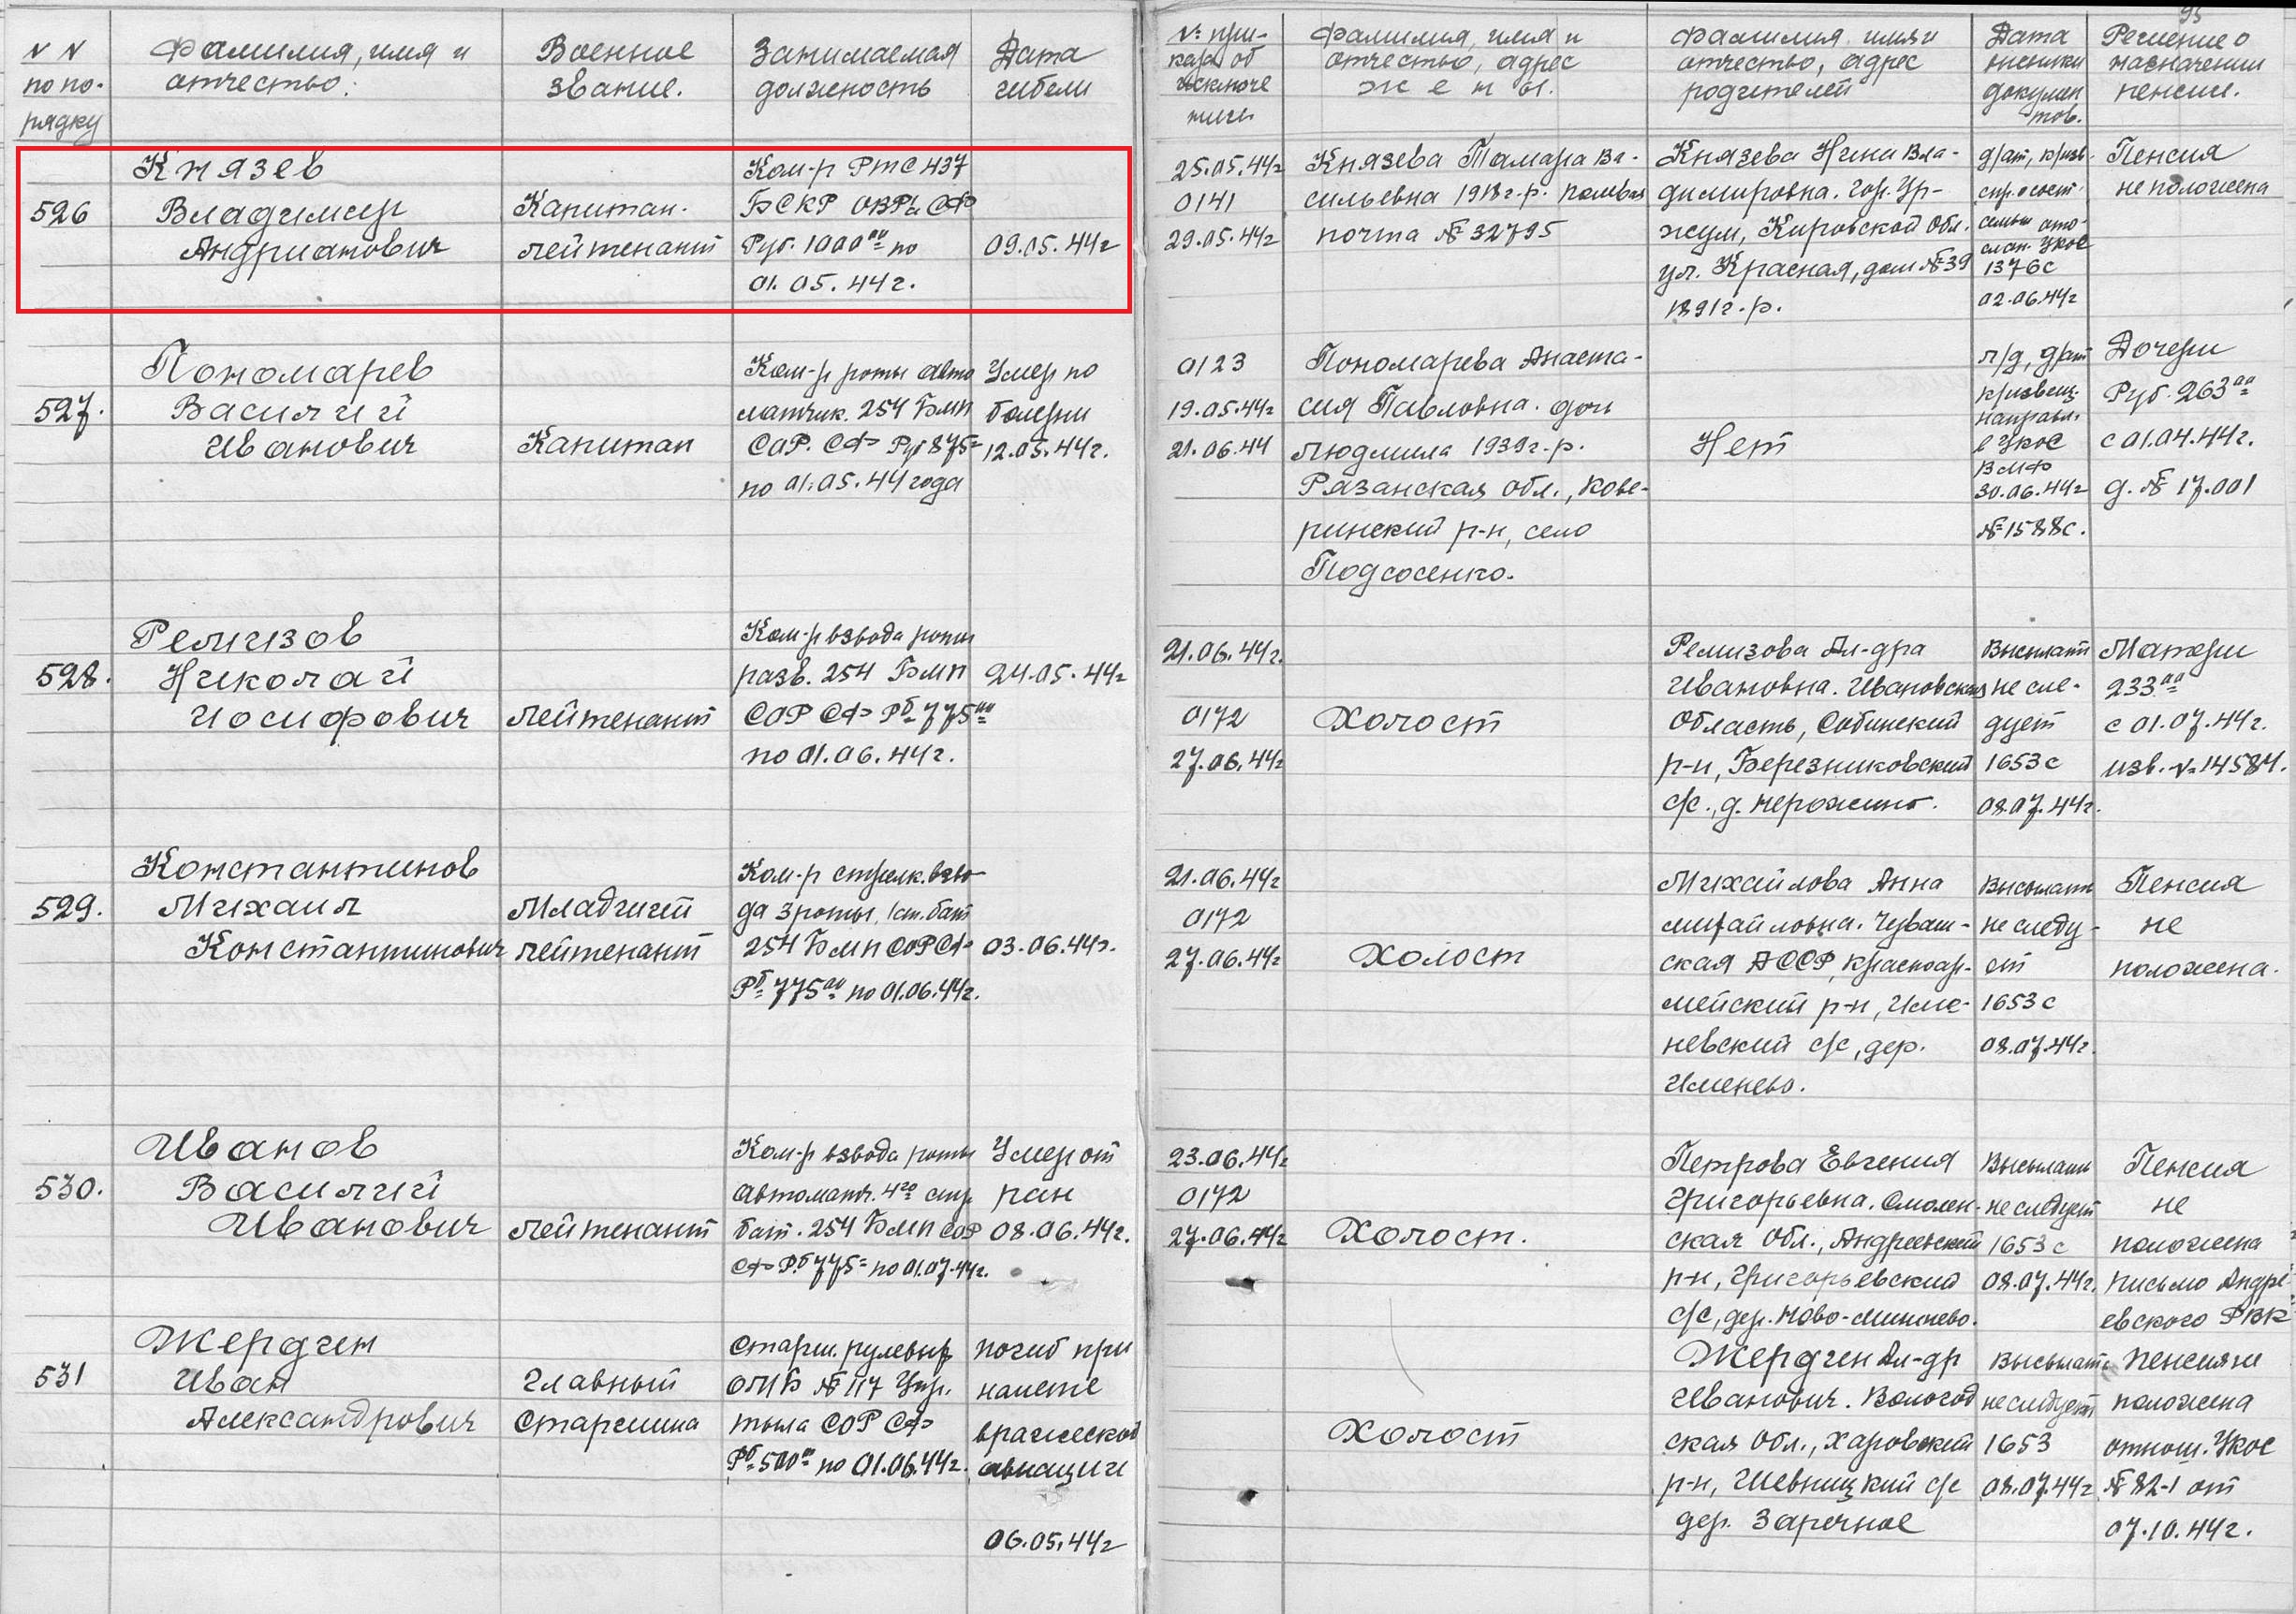 93
N N
по по-
рядку
Фамилия, имя и
отчество:
Военное
звание.
Занимаемая
должность
Дата
гибели
№ при-
каза об
исключе
нии
Фамилия, имя и
отчество, адрес
ж е н ы.
Фамилия имя и
отчество, адрес
родителей
Дата
высылки
докумен
тов.
Решение о
назначении
пенсии.
526
Князев
Владимир
Андрианович
Капитан-
лейтенант
Ком-р РТС 437
БСКР ОВРа СФ
Руб. 1000 00 по
01.05.44г.
09.05.44г
25.05.44г
0141
29.05.44г
Князева Тамара Ва-
сильевна 1918г.р. полевая
почта № 32795
Князева Нина Вла-
димировна. Гор. Ур-
жум, Кировской обл.
ул. Красная, дом № 39
1891г.р.
1376с
02.06.44г
Пенсия
не положена
527.
Пономарев
Василий
Иванович
Капитан
Ком-р роты авто
матчик. 254 БМП
СОР. СФ Руб 875=
по 01.05.44 года
Умер по
болезни
12.05.44г.
0123
19.05.44г
21.06.44
Пономарева Анаста-
сия Павловна. дочь
Людмила 1939г.р.
Рязанская обл., Кове-
ринский р-н, село
Подсосенко.
Нет
л/д, д/ат
к/извещ.
направл.
в УКОС
ВМФ
30.06.44г
№ 1588с.
Дочери
Руб. 263 00
с 01.04.44г.
д. № 17.001
528.
Ремизов
Николай
Иосифович
Лейтенант
Ком-р взвода роты
разв. 254 БМП
СОР СФ Рб 775 00
по 01.06.44г.
24.05.44г
21.06.44г.
0172
27.06.44г
Холост
Ремизова Ал-дра
Ивановна. Ивановская
область, Собинский
р-н, Березниковский
с/с., д.
Высылать
не сле-
дует
1653с
08.07.44г.
Матери
233 00
с 01.07.44г.
изв. № 14584.
529.
Константинов
Михаил
Константинович
Младший
лейтенант
Ком-р стрелк. взво-
да 3 роты, 1 ст. бат
254 БМП СОР СФ
Рб 775 00 по 01.06.44г.
03.06.44г.
21.06.44г
0172
27.06.44г
Холост
Михайлова Анна
Михайловна. Чуваш-
ская АССР, Красноар-
мейский р-н, Име-
невский с/с, дер.
Именево.
Высылать
не следу-
ет
1653с
08.07.44г.
Пенсия
не
положена.
530.
Иванов
Василий
Иванович
Лейтенант
Ком-р взвода роты
автоматч. 4го стр.
бат. 254 БМП СОР
СФ Рб 775= по 01.07.44г.
Умер от
ран
08.06.44г.
23.06.44г
0172
27.06.44г
Холост.
Петрова Евгения
Григорьевна. Смолен-
ская обл., Андреевский
р-н, Григорьевский
с/с, дер. Ново-
Высылать
не следует
1653с
08.07.44г.
Пенсия
не
положена
письмо Андре-
евского РВК
531
Жердин
Иван
Александрович
Главный
Старшина
Старш. рулевый
ОПБ № 117 Упр.
тыла СОР СФ
Рб 500 00 по 01.06.44г.
погиб при
налете
вражеской
авиации
06.05.44г
Холост
Жердин Ал-др
Иванович. Вологод
ская обл., Харовский
р-н, Шевницкий с/с
дер. Заречное
Высылать
не следует
1653
08.07.44г
Пенсия не
положена
отнош. УКОС
№ 82-1 от
07.10.44г.